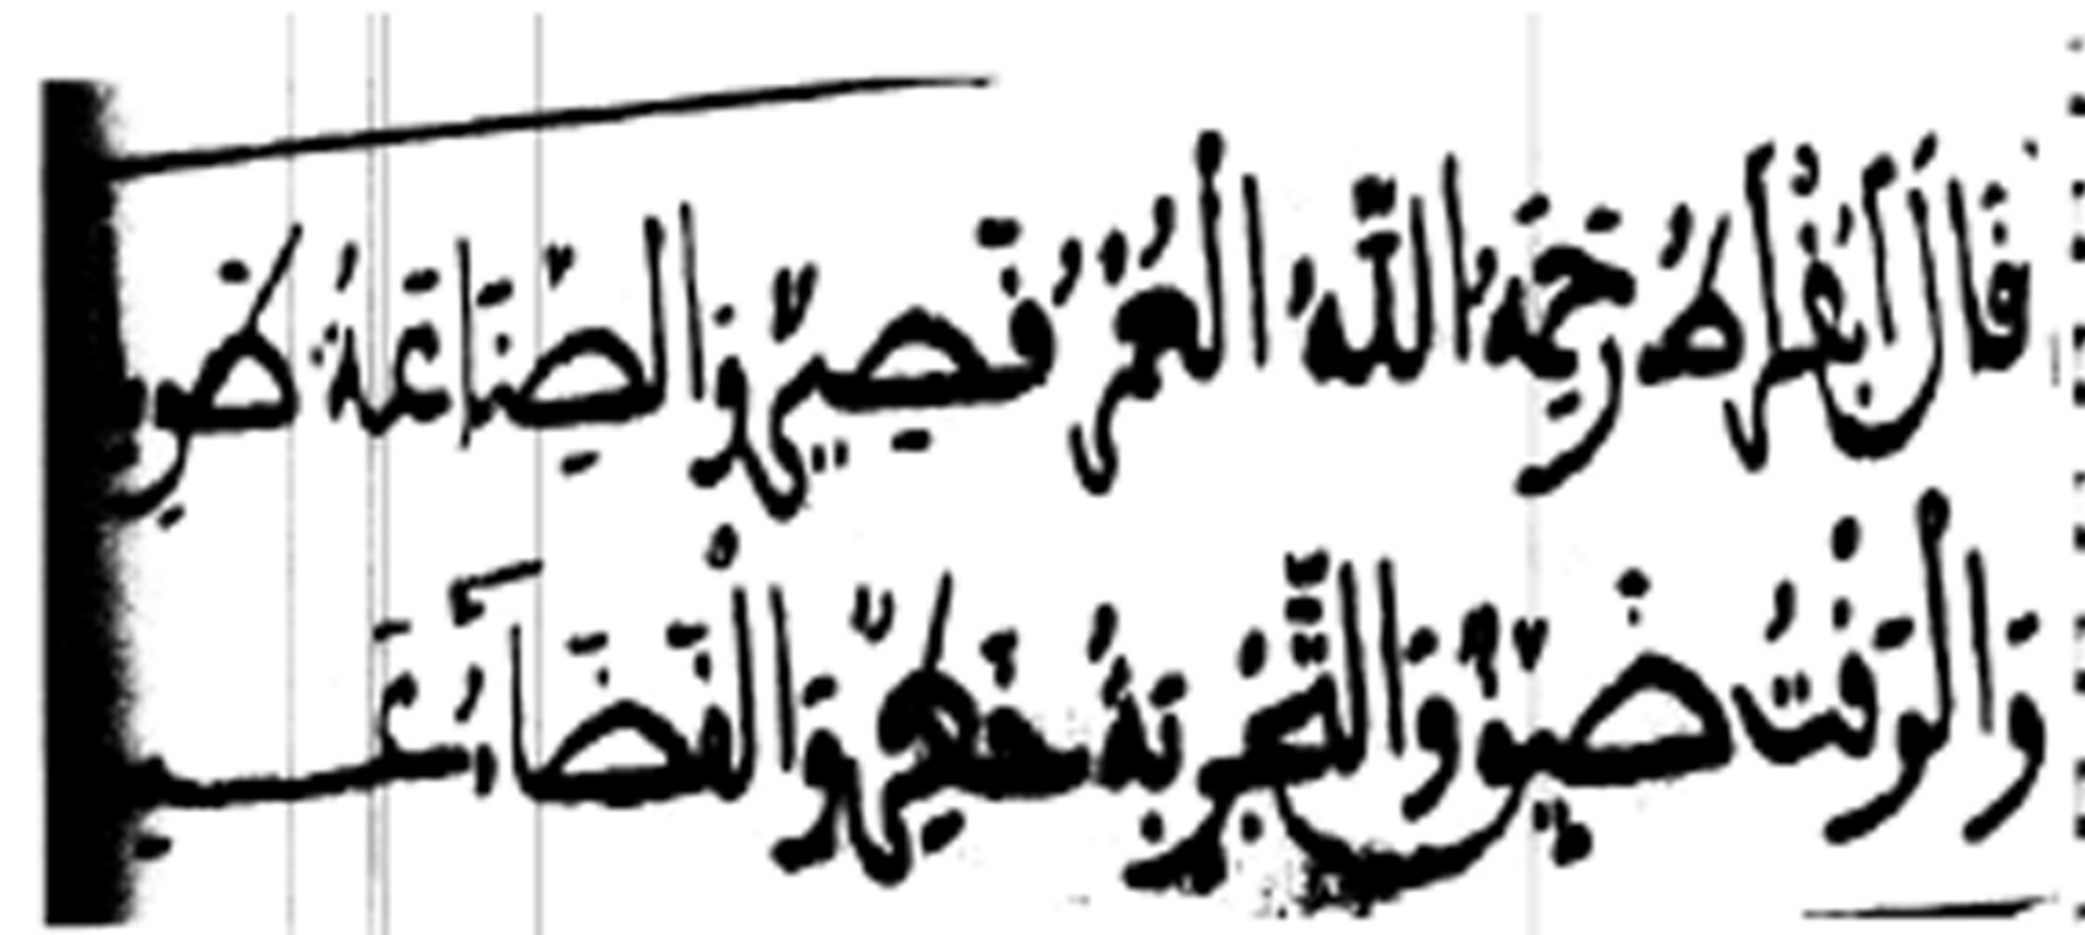 قَالَ ابُقْرَاطُ رَحِمَهُ اللّٰهُ الْعُمُرُ قَصِيرٌ وَالصِّنَاعَةُ
وَالْوَقْتُ ضَيِّقٌ وَالتَّجْرِبَةُ خَطَرٌ وَالْقَضَاءُ